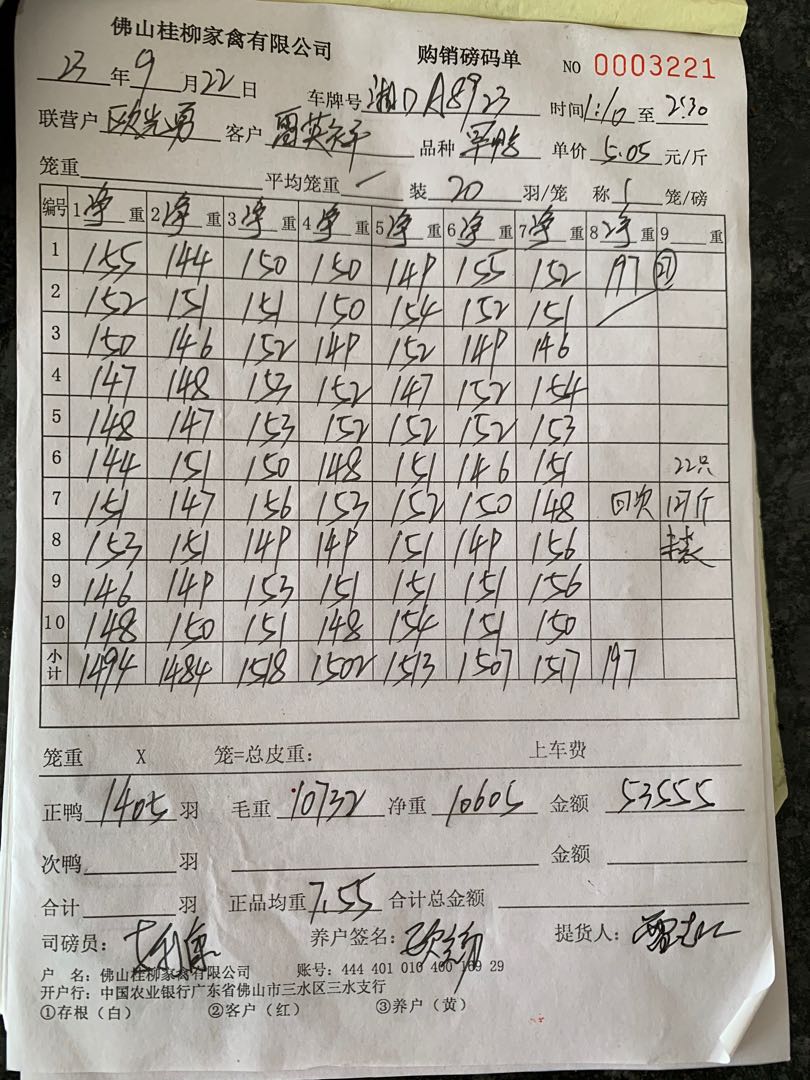 佛山桂柳家禽有限公司 购销磅码单 NO 0003221
23 年 9 月 22 日 车牌号 湘D A8923 时间 1:10 至 2:30
联营户 欧光勇 客户 雷英 品种 单价 5.05 元/斤
笼重 平均笼重 一 装 20 羽/笼 称 1 笼/磅
编号 1 净 重 2 净 重 3 净 重 4 净 重 5 净 重 6 净 重 7 净 重 8 净 重 9 重
1 155 144 150 150 149 155 152 197
2 152 151 151 150 154 152 151
3 150 146 152 149 152 149 146
4 147 148 153 152 147 152 154
5 148 147 153 152 152 152 153
6 144 151 150 148 151 146 151 22只
7 151 147 156 153 152 150 148 回次 127斤
8 153 151 149 149 151 149 156 未装
9 146 149 153 151 151 151 156
10 148 150 151 148 154 151 150
小计 1494 1484 1518 1502 1513 1507 1517 197
笼重 X 笼=总皮重: 上车费
正鸭 1405 羽 毛重 10732 净重 10605 金额 53555
次鸭 羽 金额
合计 羽 正品均重 7.55 合计总金额
司磅员: 养户签名: 提货人:
户 名: 佛山桂柳家禽有限公司 账号: 444 401 010 400 29
开户行: 中国农业银行广东省佛山市三水区三水支行
①存根(白) ②客户(红) ③养户(黄)